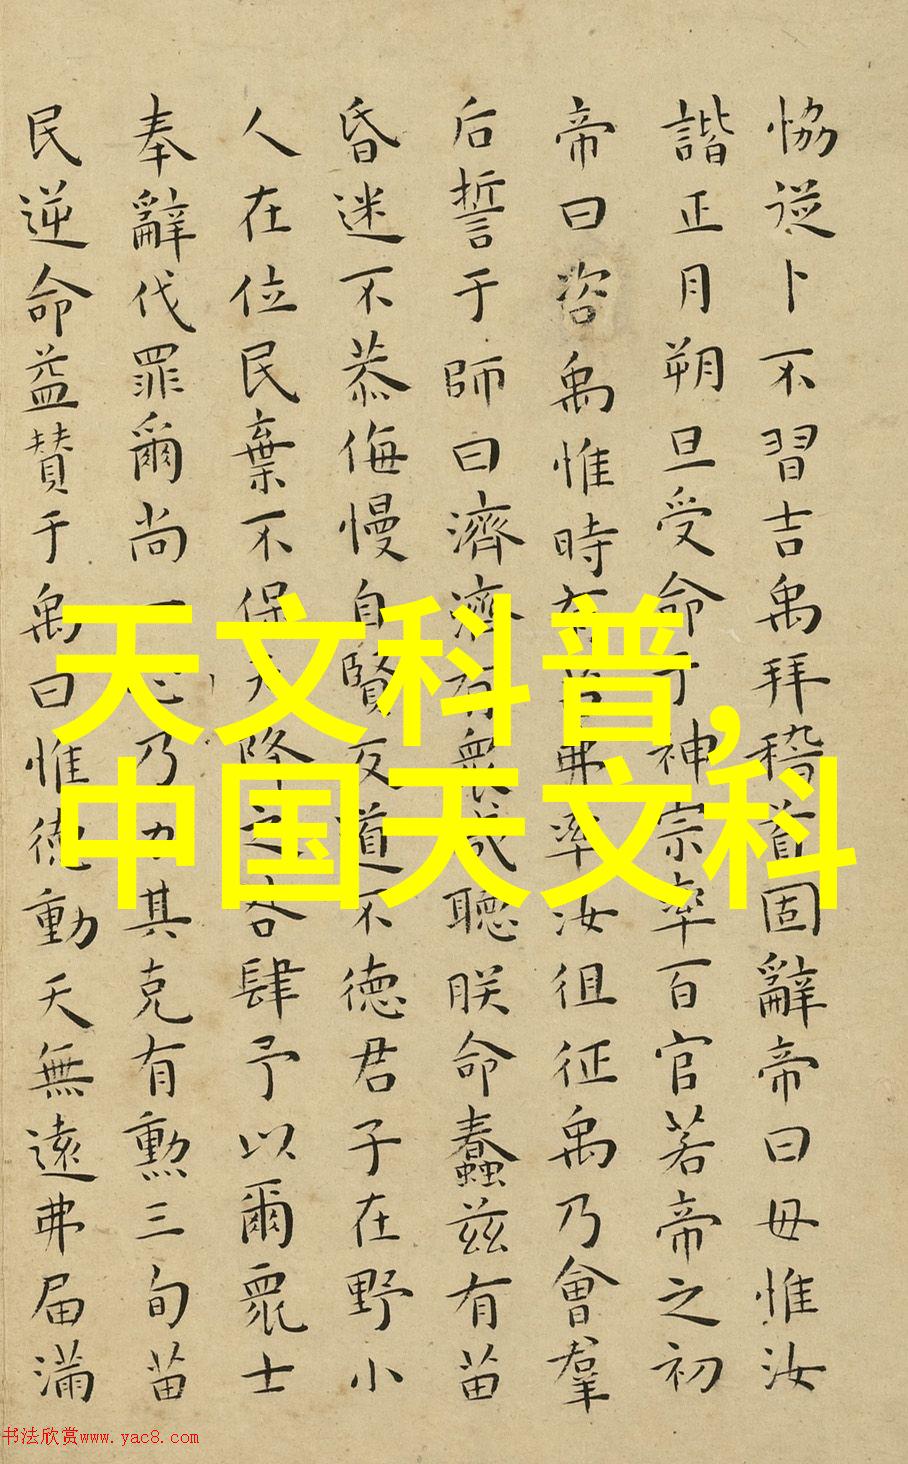 恊從卜不習吉禹拜稽首固辭帝曰毋惟汝
諧正月朔旦受命于神宗率百官若帝之初
帝曰咨禹惟時有苗弗率汝徂征禹乃會羣
后誓于師曰濟濟有衆咸聽朕命蠢茲有苗
昏迷不恭侮慢自賢反道不徳君子在野小
人在位民棄不保天降之咎肆予以爾眾士
奉辭伐罪爾尚一心乃力其克有勲三旬苗
民逆命益贊于禹曰惟徳動天無遠弗届滿
天文科普,
中国天文科
书法欣赏www.yac8.com